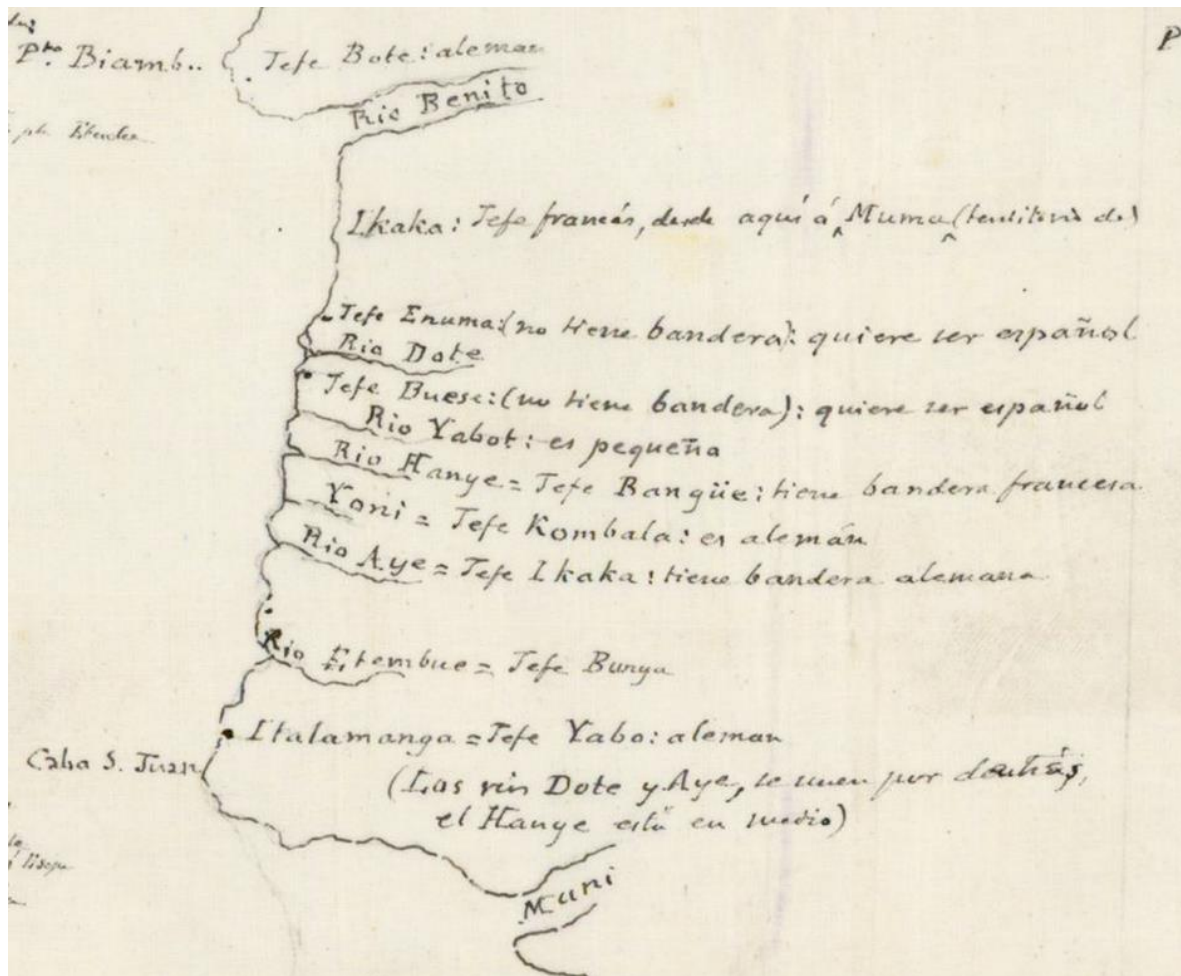 Pto. Biamb..
Jefe Bote: aleman
Rio Benito
P
Ikaka: Jefe francés, desde aquí á Muma (territorio de)
Jefe Enuma: (no tiene bandera): quiere ser español
Rio Dote
Jefe Buese: (no tiene bandera): quiere ser español
Rio Yabot: es pequeño
Rio Hanye = Jefe Bangüe: tiene bandera francesa
Yoni = Jefe Kombala: es alemán
Rio Aye = Jefe Ikaka: tiene bandera alemana
Rio Etembue = Jefe Bunya
Italamanga = Jefe Yabo: aleman
Cabo S. Juan
(Los rios Dote y Aye, se unen por detrás,
el Hanye está en medio)
Muni